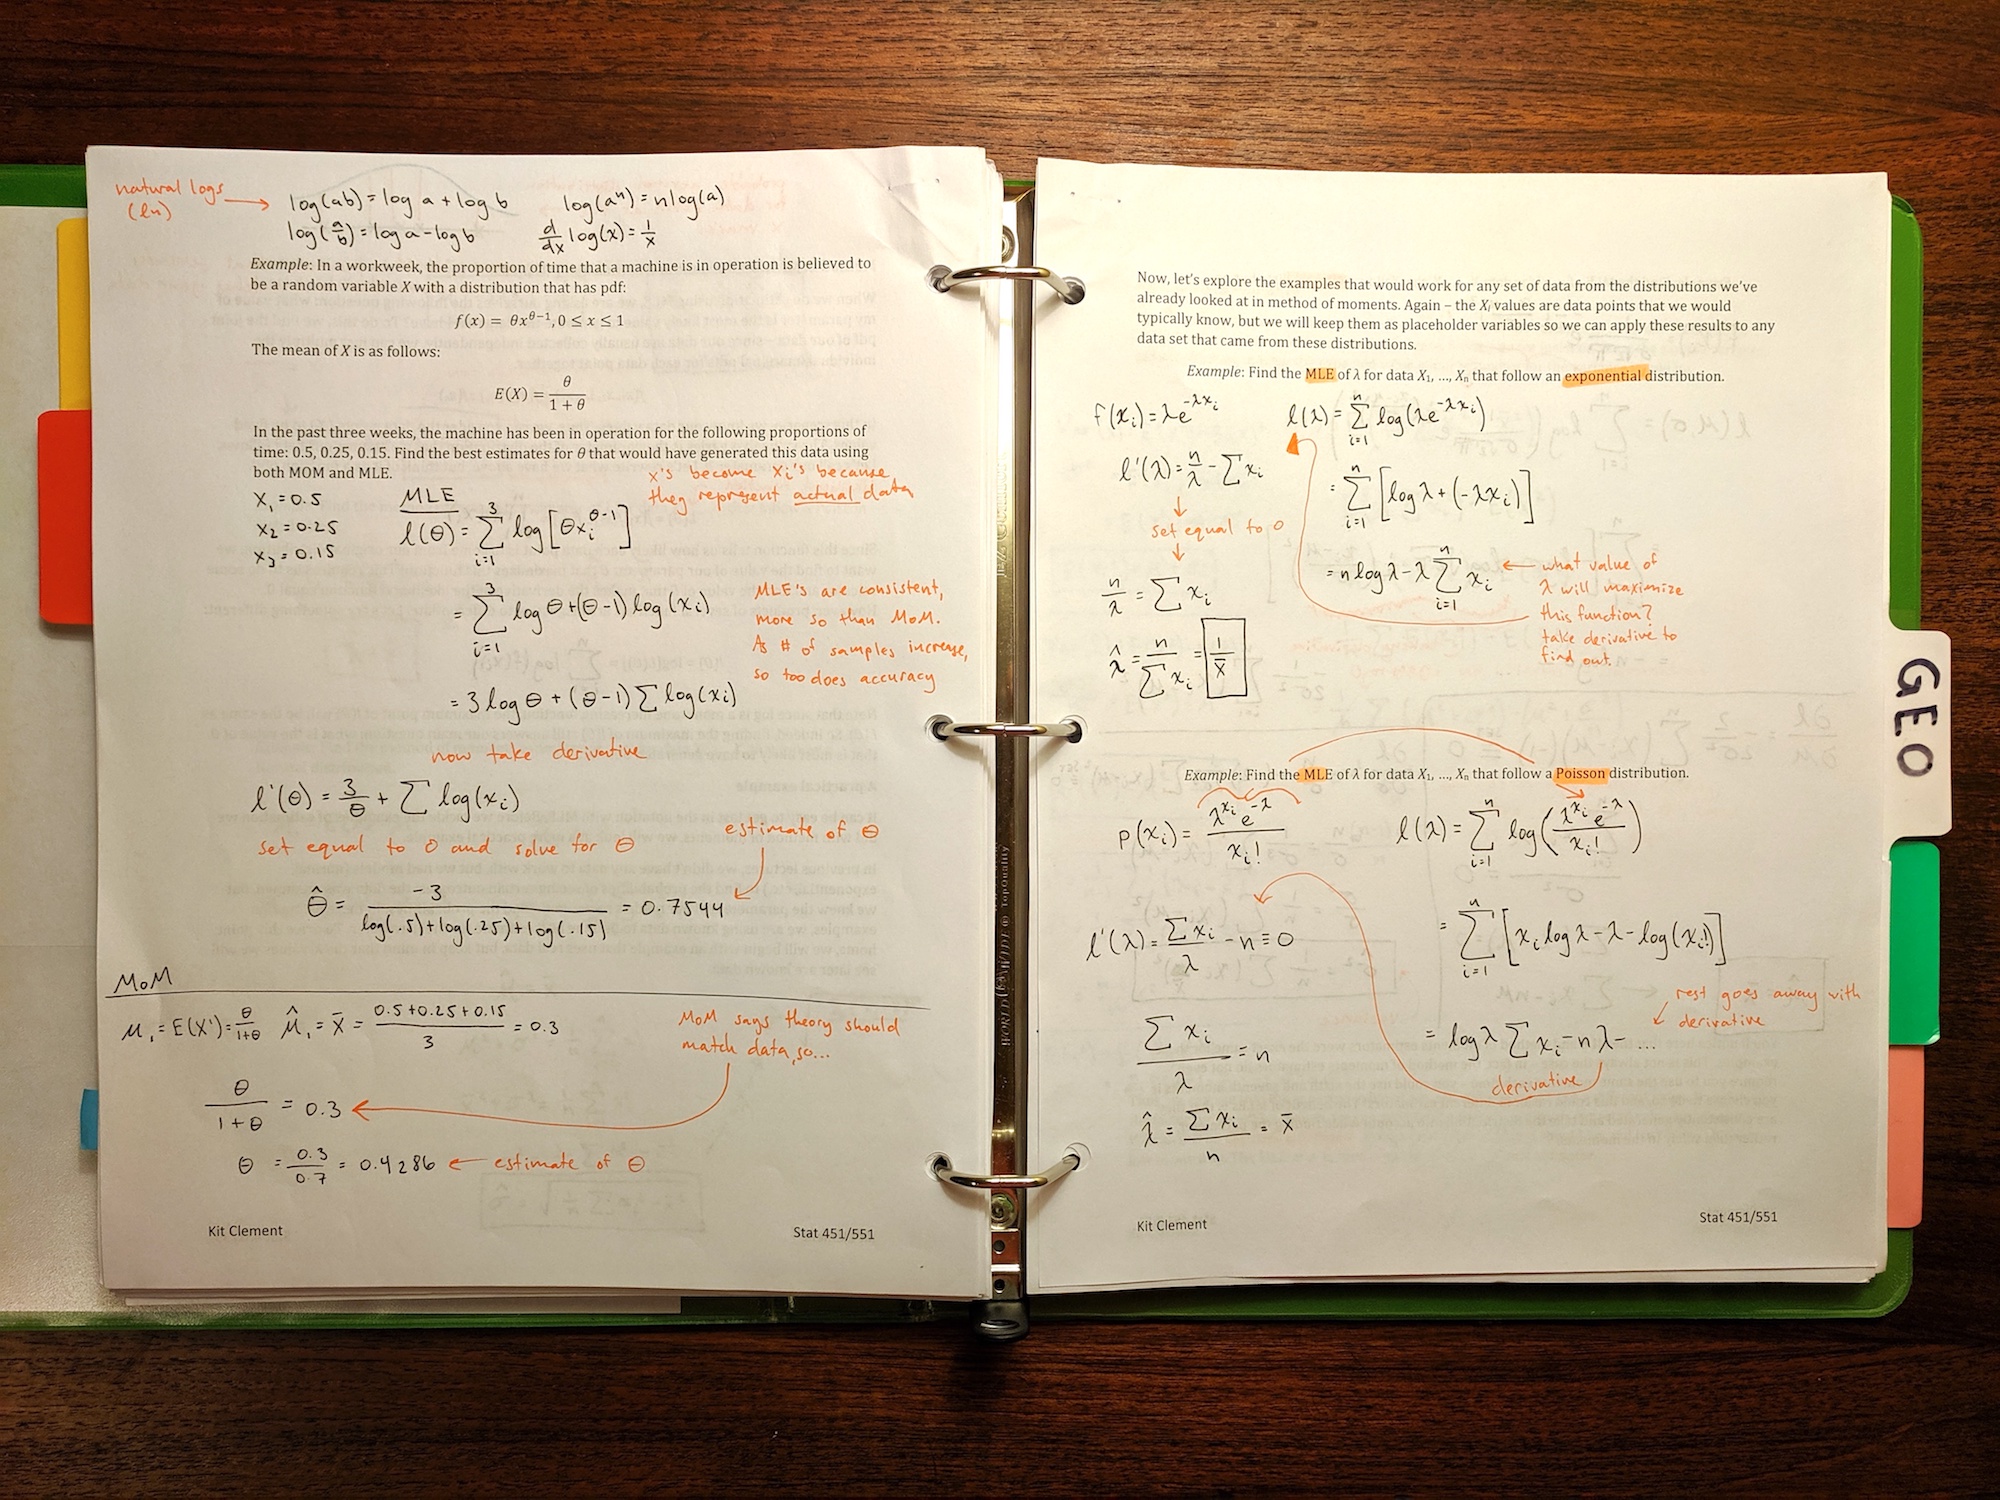 natural logs
(ln)
log(ab)=log a + log b    log(aⁿ)=nlog(a)
log(a/b)=log a - log b    d/dx log(x)=1/x
Example: In a workweek, the proportion of time that a machine is in operation is believed to
be a random variable X with a distribution that has pdf:
f(x) = θx^(θ−1), 0 ≤ x ≤ 1
The mean of X is as follows:
E(X) = θ/(1 + θ)
In the past three weeks, the machine has been in operation for the following proportions of
time: 0.5, 0.25, 0.15. Find the best estimates for θ that would have generated this data using
both MOM and MLE.
x's become xᵢ's because
they represent actual data
x₁ = 0.5
x₂ = 0.25
x₃ = 0.15
MLE
l(θ) = Σ_{i=1}^{3} log[θxᵢ^(θ-1)]
= Σ_{i=1}^{3} log θ + (θ-1) log(xᵢ)
= 3 log θ + (θ-1) Σ log(xᵢ)
MLE's are consistent,
more so than MoM.
As # of samples increase,
so too does accuracy
now take derivative
l'(θ) = 3/θ + Σ log(xᵢ)
set equal to 0 and solve for θ
estimate of θ
θ̂ = -3/(log(.5)+log(.25)+log(.15)) = 0.7544
MoM
μ₁ = E(X¹) = θ/(1+θ)    μ̂₁ = x̄ = (0.5+0.25+0.15)/3 = 0.3
MoM says theory should
match data, so...
θ/(1+θ) = 0.3
θ = 0.3/0.7 = 0.4286 ← estimate of θ
Kit Clement    Stat 451/551
Now, let's explore the examples that would work for any set of data from the distributions we've
already looked at in method of moments. Again – the Xᵢ values are data points that we would
typically know, but we will keep them as placeholder variables so we can apply these results to any
data set that came from these distributions.
Example: Find the MLE of λ for data X₁, ..., Xₙ that follow an exponential distribution.
f(xᵢ) = λe^(-λxᵢ)
l(λ) = Σ_{i=1}^{n} log(λe^(-λxᵢ))
= Σ_{i=1}^{n} [log λ + (-λxᵢ)]
= n log λ - λ Σ_{i=1}^{n} xᵢ
what value of
λ will maximize
this function?
take derivative to
find out.
l'(λ) = n/λ - Σ xᵢ
set equal to 0
n/λ = Σ xᵢ
λ̂ = n/Σ xᵢ = 1/x̄
Example: Find the MLE of λ for data X₁, ..., Xₙ that follow a Poisson distribution.
p(xᵢ) = λ^(xᵢ) e^(-λ)/xᵢ!
l(λ) = Σ_{i=1}^{n} log(λ^(xᵢ) e^(-λ)/xᵢ!)
= Σ_{i=1}^{n} [xᵢ log λ - λ - log(xᵢ!)]
rest goes away with
derivative
= log λ Σ xᵢ - n λ - ...
derivative
l'(λ) = Σ xᵢ/λ - n ≡ 0
Σ xᵢ/λ = n
λ̂ = Σ xᵢ/n = x̄
Kit Clement    Stat 451/551
GEO